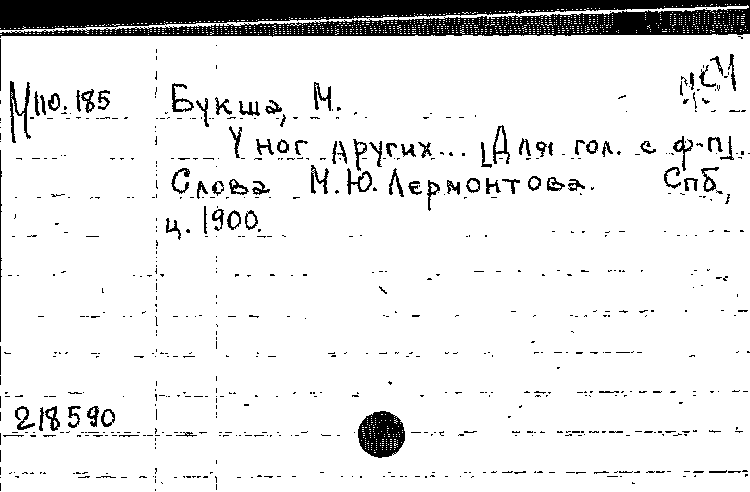 М 110.185
Букша, М.
У ног других... [Для гол. с ф-п].
Слова М.Ю. Лермонтова. Спб,
ц. 1900.
218590